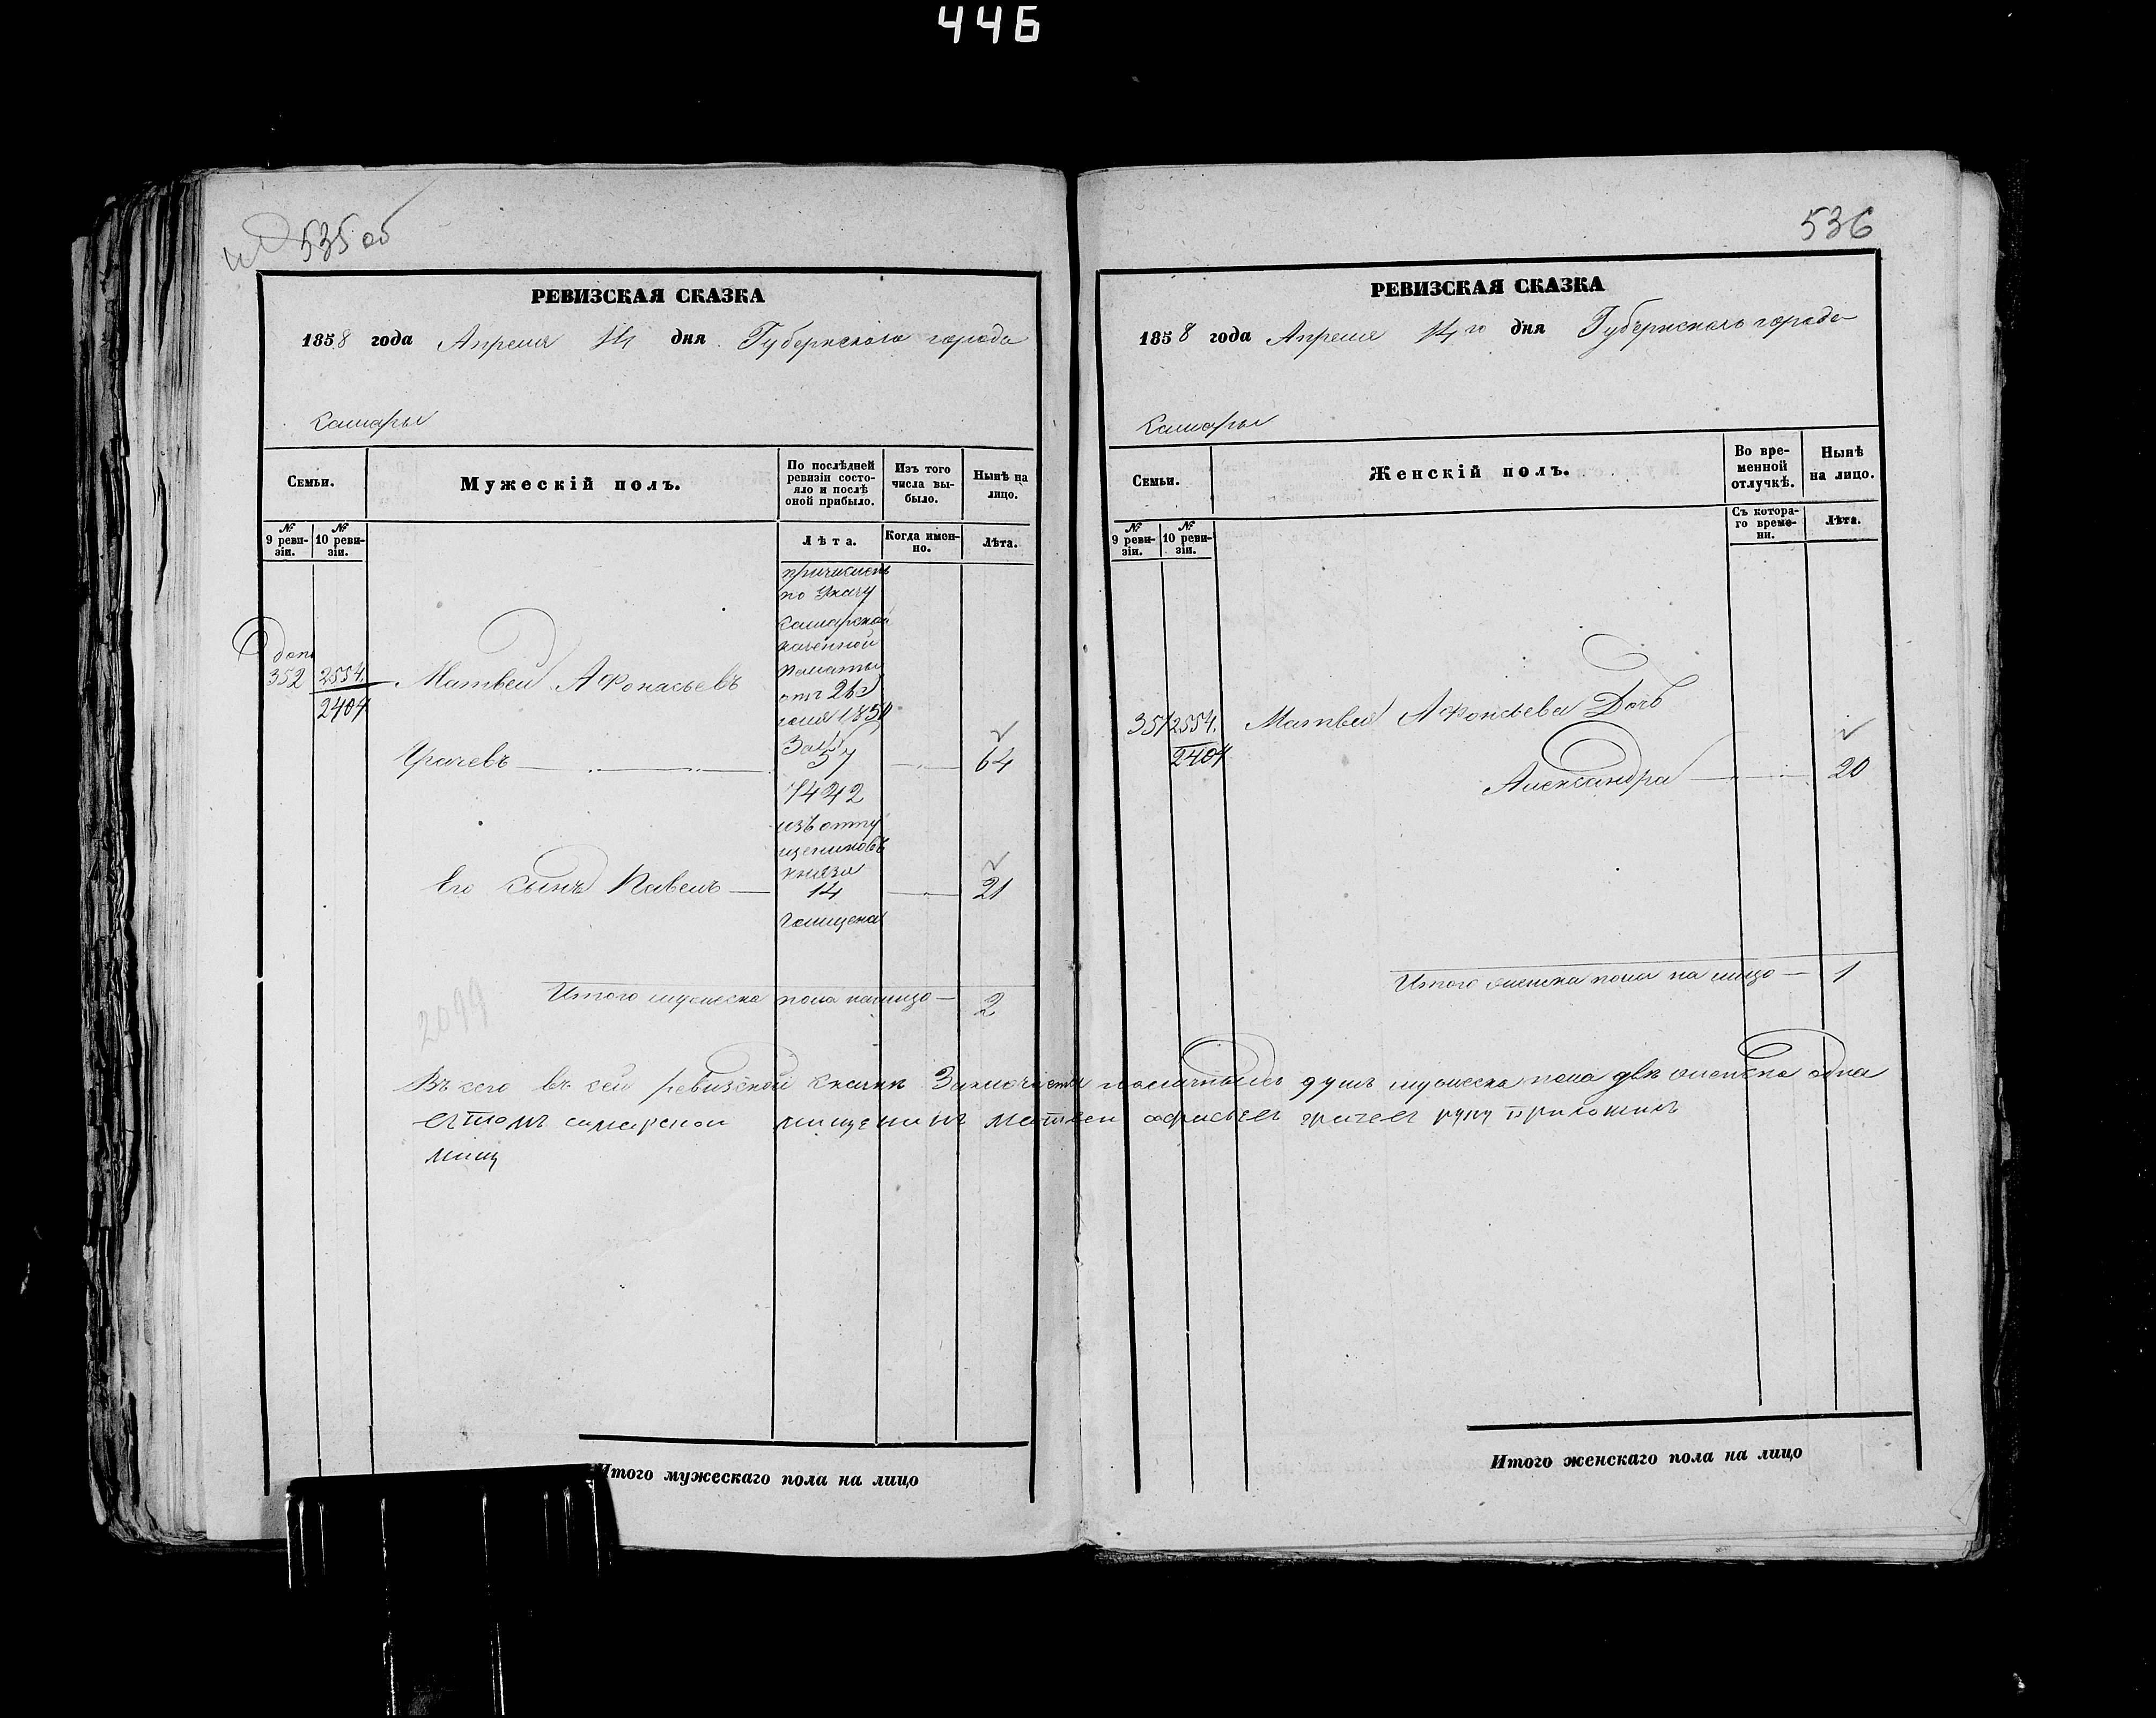 446
535 об
РЕВИЗСКАЯ СКАЗКА
1858 года Апреля 14 дня Губернскаго города
Самары
Семьи.
Мужескій полъ.
По послѣдней ревизіи состо-
яло и послѣ
оной прибыло.
Изъ того
числа вы-
было.
Нынѣ на
лицо.
№
9 реви-
зіи.
№
10 реви-
зіи.
Лѣта.
Когда имен-
но.
Лѣта.
причислен
по указу
Самарской
казенной
палаты
отъ 26
1850
За №
7442
изъ отпу
щениковъ
князя
Голицена
доп
352
2554.
2404
Матвей Афонасьевъ
Грачевъ
57
64
Его сынъ Павелъ
14
21
Итого мужеска пола налицо 2
2099
Въсего въ сей ревизской скаске Заключается наличныхъ душъ мужеска пола две женска одна
самарской мищенинъ матвеи грачев руку приложилъ
мищ
Итого мужескаго пола на лицо
536
РЕВИЗСКАЯ СКАЗКА
1858 года Апреля 14го дня Губернскаго города
Самары
Семьи.
Женскій полъ.
Во вре-
менной
отлучкѣ.
Нынѣ
на лицо.
№
9 реви-
зіи.
№
10 реви-
зіи.
Съ котора-
го време-
ни.
Лѣта.
2554.
2404
Матвея Афонсьева Дочь
Александра
20
Итого женска пола на лицо 1
Итого женскаго пола на лицо